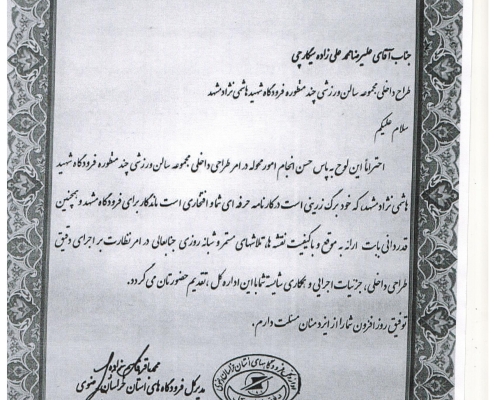 جناب آقای علیرضا محمد علی زاده سیگارچی
طراح داخلی مجموعه سالن ورزشی چند منظوره فرودگاه شهید هاشمی نژاد مشهد
سلام علیکم
احتراماً این لوح به پاس حسن انجام امور محوله در امر طراحی داخلی مجموعه سالن ورزشی چند منظوره فرودگاه شهید
هاشمی نژاد مشهد، که خود برگ زرینی است در کارنامه حرفه ای شما و افتخاری است ماندگار برای فرودگاه مشهد و همچنین
قدردانی بابت ارائه به موقع و با کیفیت نقشه ها، تلاشهای مستمر و شبانه روزی جنابعالی در امر نظارت بر اجرای دقیق
طراحی داخلی، جزئیات اجرایی و همکاری شایسته شما با این اداره کل، تقدیم حضورتان می گردد.
توفیق روز افزون شما را از ایزد منان مسئلت دارم.
مدیر کل فرودگاه های استان خراسان رضوی